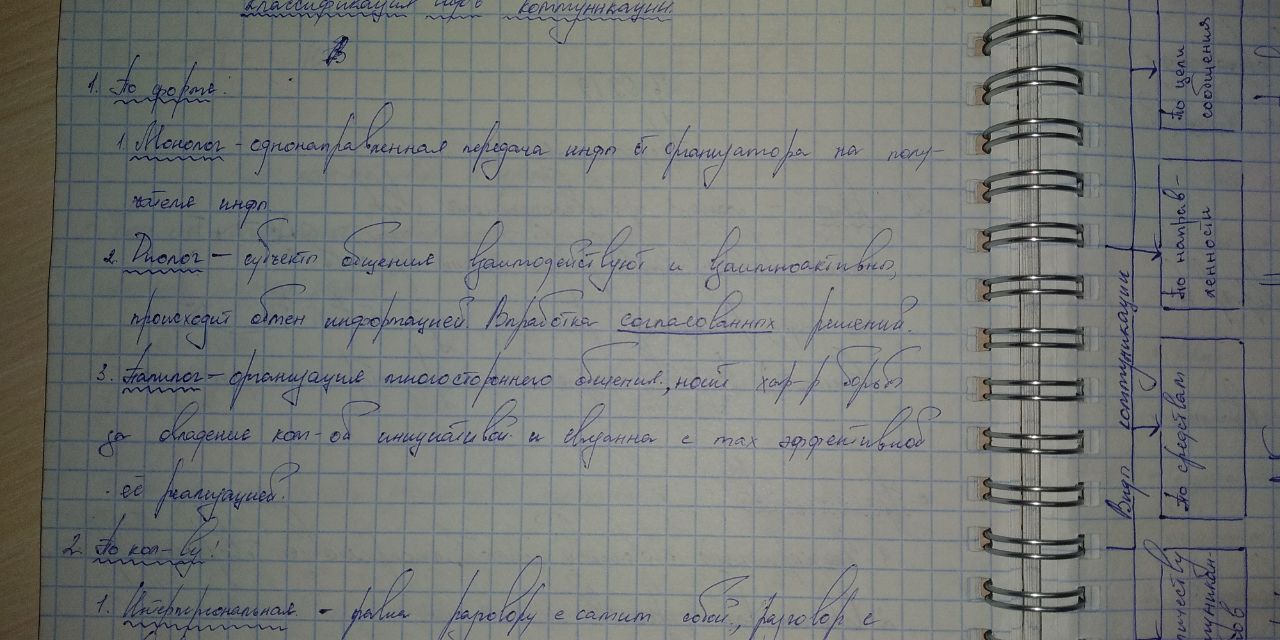 Классификация коммуникации
1. По форме:
1. Монолог - однонаправленная передача инфы от организатора на полу-
чателя инфы
2. Диолог - субъекты общения взаимодействуют и взаимноактивны,
происходит обмен информацией. Выработка согласованных решений.
3. Полилог - организация многостороннего общения, носит хар-р борьбы
за овладение ком-ой инициативой и связанна с max эффективной
её реализацией.
2. По кол-ву:
1. Интерперсональная - равна разговору с самим собой, разговор с
Виды коммуникации
По цели
сообщения
По направ-
ленности
По средствам